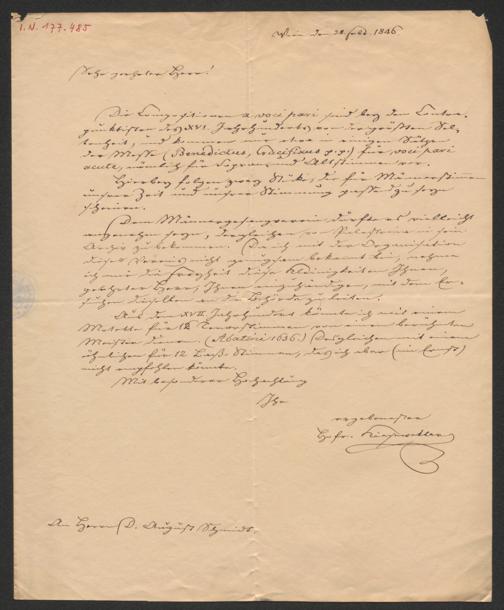 I.N. 177.485
Wien den 28. 1846
Sehr geehrter Herr!
Die Compositionen a voci pari sind bey den Contra-
punktisten des XVI. Jahrhunderts von der größten Sel-
tenheit, und kommen nur etwa in einigen Sätzen
der Messe (Benedictus, Crucifixus p.p.) für voci pari
acute, nämlich für Sopran und Altstimmen vor.
Hierbey folgen zwey Stüke, die für Männerstimmen
unserer Zeit und unserer Stimmung passend zu seyn
scheinen.
Dem Männergesangverein dürfte es vielleicht
angenehm seyn, dergleichen von Palestrina in sein
Archiv zu bekommen. Da ich mit der Organisation
dieses Vereins nicht genugsam bekannt bin, nehme
ich mir die Freyheit diese Kleinigkeiten Ihnen,
geehrter Herr, einzuhändigen, mit dem Er-
suchen dieselben an die Behörde zu leiten.
Aus dem XVII Jahrhundert könnte ich mit einem
Motette für 12 Tenorstimmen von einem berühmten
Meister dienen. (Abatini 1636.) Desgleichen mit einem
ähnlichen für 12 Baß-Stimmen, das ich aber (im Ernst)
nicht empfehlen könnte.
Mit besonderer Hochachtung
Ihr
ergebenster
Hofr. Kiesewetter
An Herrn D. August Schmidt.